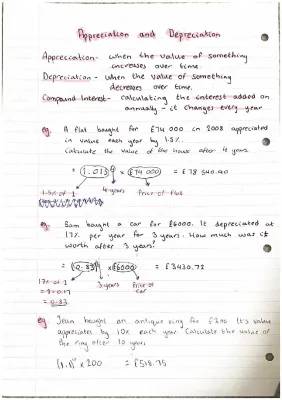 Appreciation and Depreciation
Appreciation - when the value of something
increases over time.
Depreciation - when the value of something
decreases over time.
Compound Interest - calculating the interest added on
annually - it changes every year
eg. A flat bought for £74 000 in 2008 appreciated
in value each year by 1.5%.
Calculate the value of the house after 4 years.
= £78 540.90
4 years Price of flat
eg. Sam bought a car for £6000. It depreciated at
17% per year for 3 years. How much was it
worth after 3 years?
= (0.83)³ × £6000 = £3430.72
17% of 1 3 years Price of
car
= 0.83
eg Jean bought an antique ring for It's value
appreciates by 10% each year. Calculate the value of
the ring after 10 years
(1.1)¹⁰ × 200 = £518.75